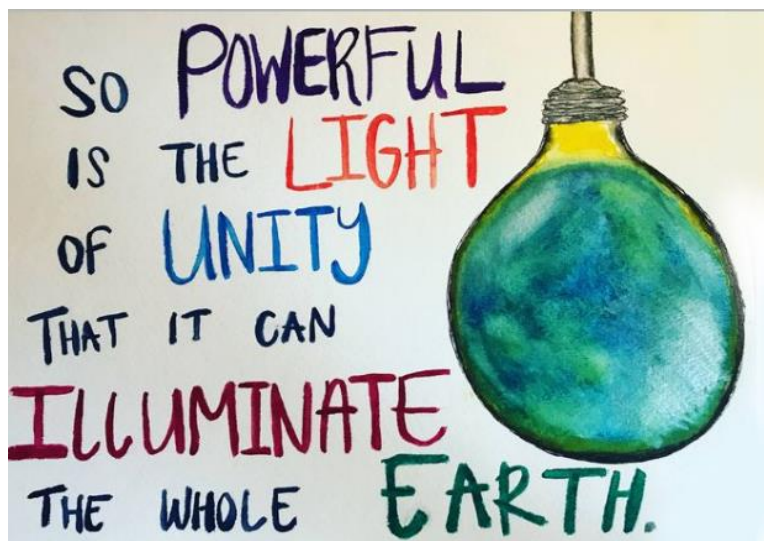 SO POWERFUL
IS THE LIGHT
OF UNITY
THAT IT CAN
ILLUMINATE
THE WHOLE EARTH.